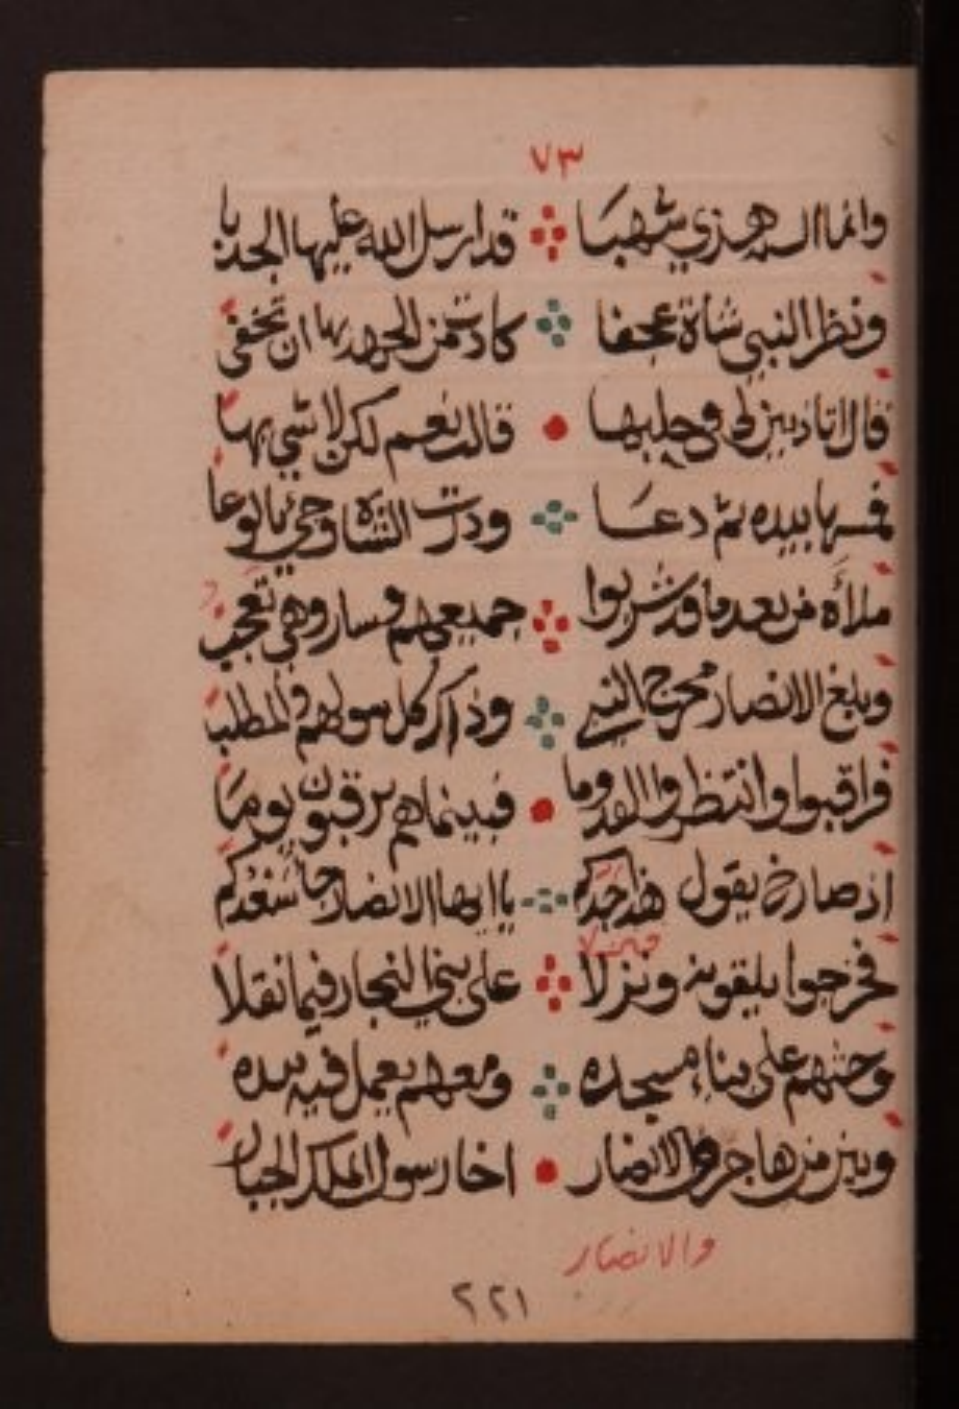 ٧٣
وانما السه هذي شهبا قد ارسل الله عليها الجدبا
ونظر النبي شاة عجفا كادت من الجهد بها ان تخفى
قال اتاذنين لي في حلبها قالت نعم لكن لا شي بها
فمسها بيده ثم دعا ودرت الشاة وجئ بالوعا
ملأه من بعد ما قد شربوا جميعهم وسار وهي تعجب
وبلغ الانصار مخرج النبي وذاكر كل سولهم والمطلب
فراقبوا وانتظروا القدوما فبينماهم يرقبون يوما
اذ صارخ يقول هذا جدكم يا ايها الانصار جا سعدكم
فخرجوا يلقونه ونزلا على بني النجار فيما نقلا
وحثهم على بناء مسجده ومعهم يعمل فيه بيده
وبين من هاجر والانصار اخا رسول الملك الجبار
والانصار
٢٢١